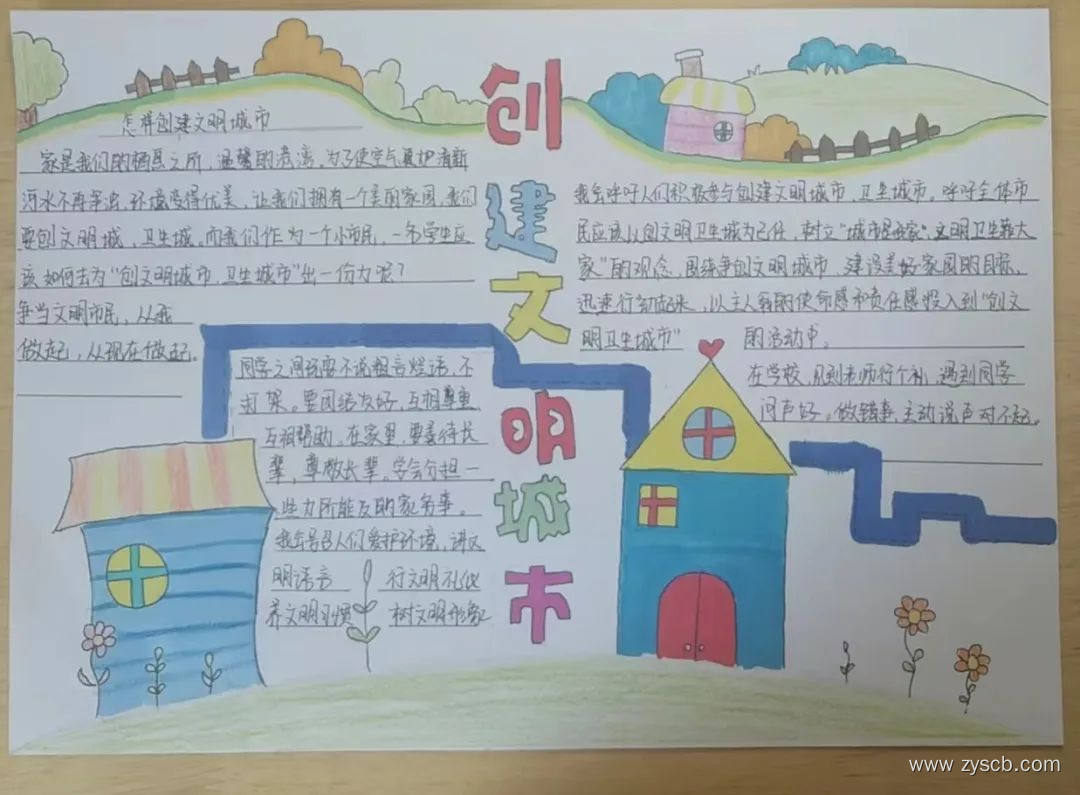 创建文明城市
怎样创建文明城市
家是我们的栖息之所，温馨的港湾。为了使空气更加清新
河水不再浑浊，环境变得优美，让我们拥有一个美丽家园，我们
要创文明城，卫生城，而我们作为一个小市民，一名学生应
该如何去为“创文明城市，卫生城市”出一份力呢？
争当文明市民，从我
做起，从现在做起。
同学之间玩耍不说粗言烂语，不
打架。要团结友好，互相尊重
互相帮助。在家里，要善待长
辈，尊敬长辈。学会分担一
些力所能及的家务事。
我会号召人们爱护环境，讲文
明语言 行文明礼仪
养文明习惯 树文明形象
我会呼吁人们积极参与创建文明城市，卫生城市。呼吁全体市
民应该以创文明卫生城为己任，树立“城市是我家，文明卫生靠大
家”的观念，围绕争创文明城市，建设美好家园的目标，
迅速行动起来，以主人翁的使命感和责任感投入到“创文
明卫生城市” 的活动中。
在学校，见到老师行个礼，遇到同学
问声好。做错事，主动说声对不起。
www.zyscb.com